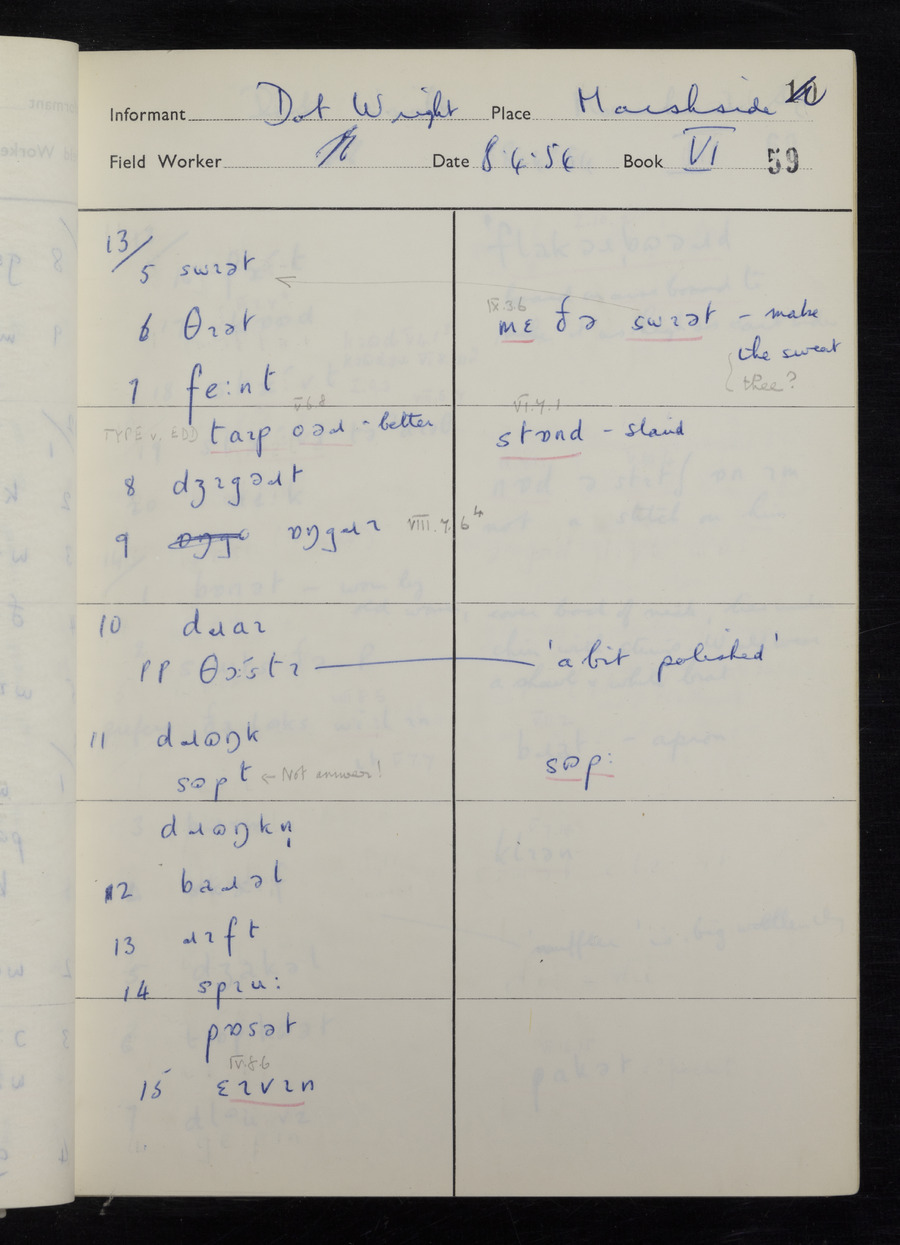 Informant Dot Wright Place Marshside 10
Field Worker Date 8.4.54 Book VI 59
13/
5 swɪət
6 θɪət
IX.3.6
mɛ ðə swɪət – make
the sweat
thee?
7 fe:nt
V.6.8
TYPE v. EDD taɪp oəɹ - better
VI.4.1
stɒnd – stand
8 dʒɪgəɹt
9 ɒŋgɹɪ VIII.4.6⁴
10 dɹaɪ
PP θə:stɪ 'a bit polished'
11 dɹɷŋk
sɷpt ← Not answer!
sɷp:
dɹɷŋkn̩
12 baɹəl
13 ɹɪft
14 spɪu:
pɷsət
IV.8.6
15 ɛɪvɪn